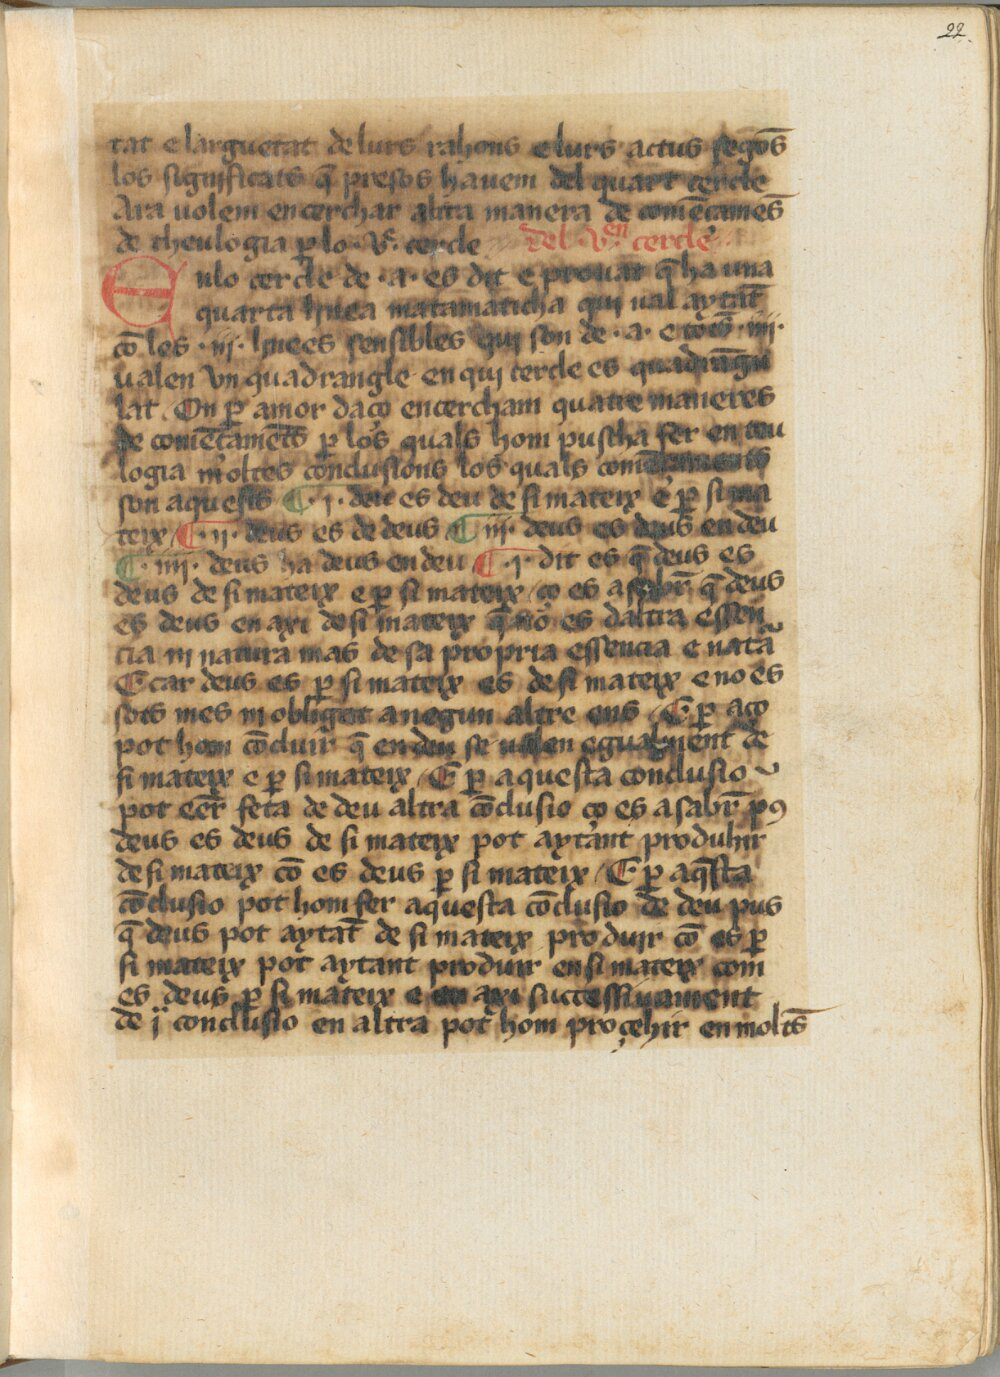 22
tat e larguetat de lurs rahons e lurs actus segōs
los significats q̄ presos hauem del quart cercle
Ara uolem encerchar altra manera de comēcamēs
de theulogia p̱ lo .v͛. cercle del .v.en cercle.
Enlo cercle de .a. es dit e prouat q̄ ha una
quarta linea matamaticha qui ual aytāt
cō les .iij. linees sensibles qui son de .a. e totes .iiij.
ualen vn quadrangle en qui cercle es quadrāgu
lat. On p̱ amor daço encercham quatre maneres
de comēcamēts p̱ los quals hom puscha fer en teu
logia moltes conclusions los quals comēcaments
son aquests ¶ .j. deu es deu de si mateix e p̱ si ma
teix ¶ .ij. deus es de deus ¶ .iij. deus es deus en deu
¶ .iiij. deus ha deus en deu ¶ .j. dit es q̄ deus es
deus de si mateix e p̱ si mateix / ço es a saber q̄ deus
es deus en axi de si mateix q̄ no es daltra essen
cia ni natura mas de sa propria essencia e natā
E car deus es p̱ si mateix es de si mateix e no es
sots mes ni obligat a negun altre ens / E p̱ aço
pot hom cōcluir q̄ en deu se ualen egualment de
si mateix e p̱ si mateix / E p̱ aquesta conclusio
pot eēr feta de deu altra cōclusio ço es a sabr̄ pꝰ
deus es deus de si mateix pot aytant produhir
de si mateix cō es deus p̱ si mateix / E p̱ aq̄sta
cōclusio pot hom fer aquesta cōclusio de deu pus
q̄ deus pot aytāt de si mateix produir cō es p̱
si mateix pot aytant produir en si mateix com
es deus p̱ si mateix e en axi successiuament
de j.ª conclusio en altra pot hom proçehir en molts̄